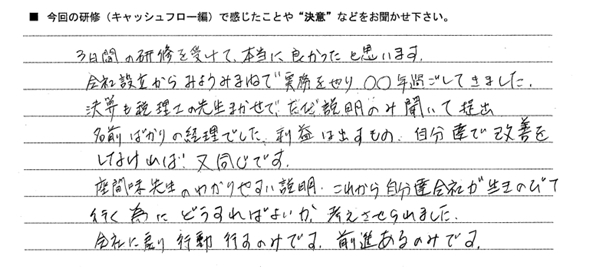 ■ 今回の研修（キャッシュフロー編）で感じたことや“決意”などをお聞かせ下さい。
3日間の研修を受けて、本当に良かったと思います。
会社設立からみようみまねで実務をやり、〇〇年過ごしてきました。
決算も税理士の先生まかせで、ただ説明のみ聞いて提出
名前ばかりの経理でした、利益は出すもの、自分達で改善を
しなければ！又同じです。
座間味先生のわかりやすい説明、これから自分達会社が生きのびて
行く為にどうすればよいか、考えさせられました。
会社に戻り行動行するのみです。前進あるのみです。